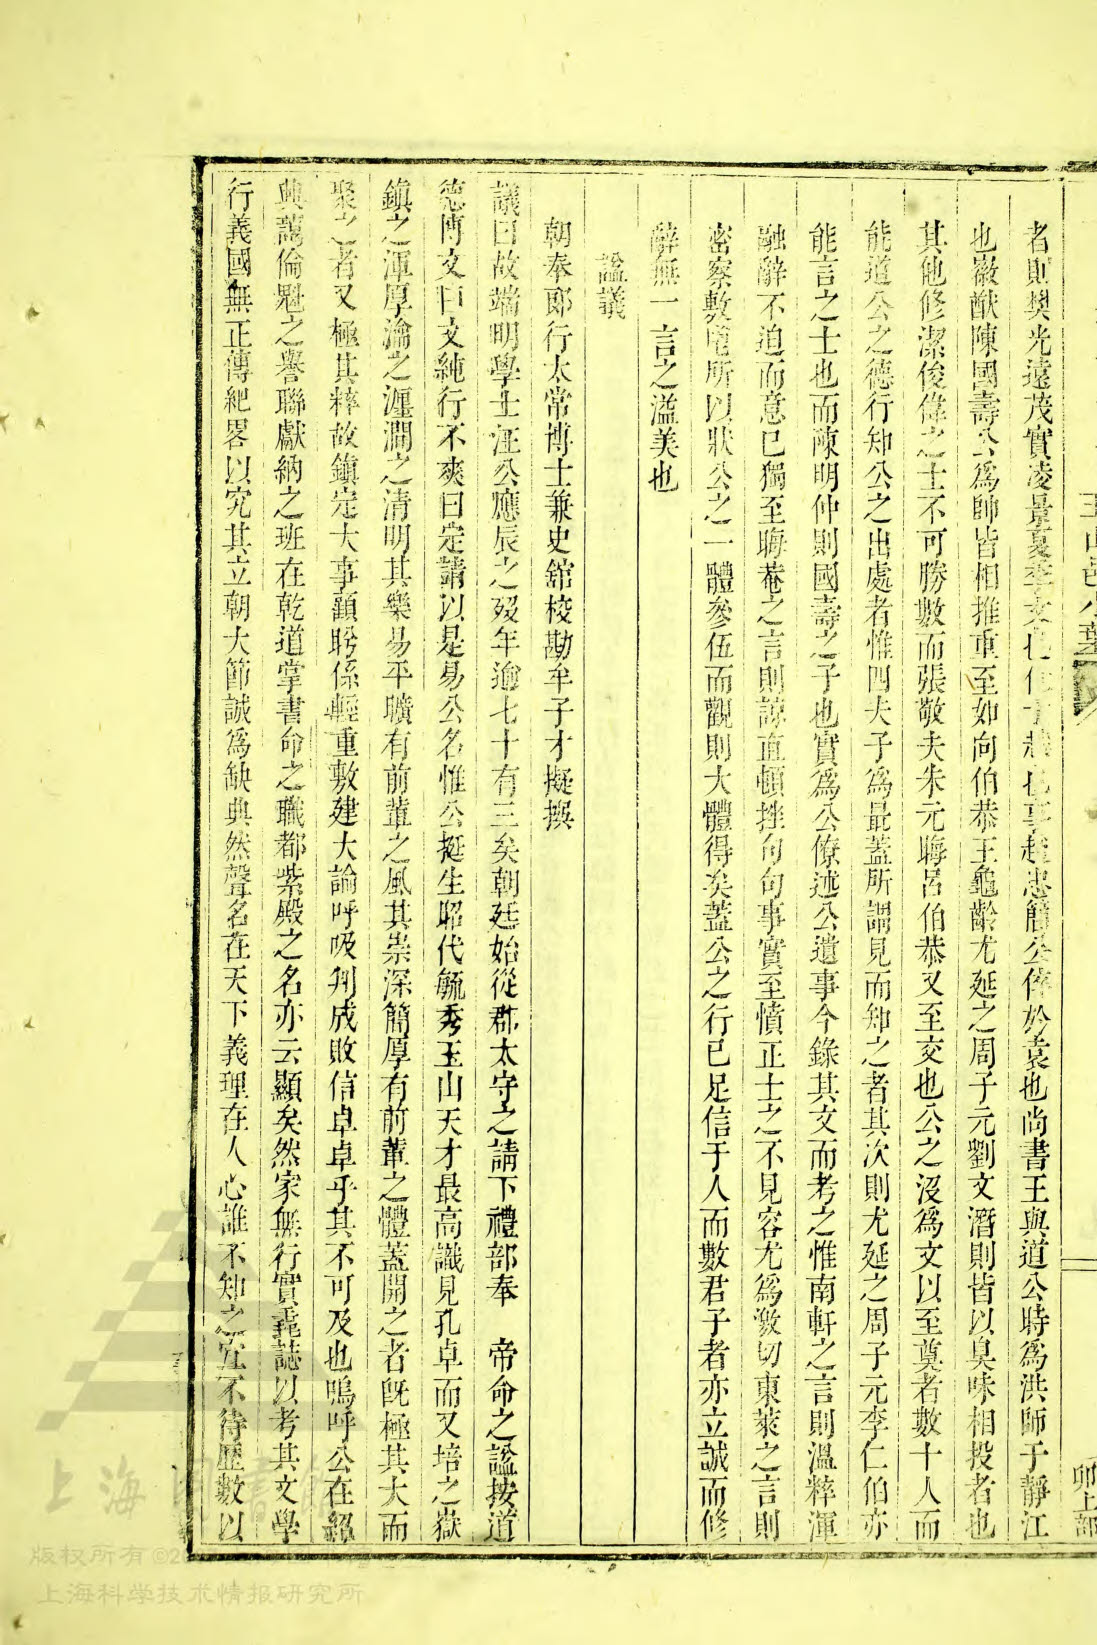 者則樊光遠茂實凌景夏季文也趙忠簡公倅於袁也尚書王與道公時爲洪師于靜江
也徽猷陳國壽公爲帥皆相推重至如向伯恭王龜齡尤延之周子元劉文潛則皆以臭味相投者也
其他修潔俊偉之士不可勝數而張敬夫朱元晦呂伯恭又至交也公之沒爲文以至奠者數十人而
能道公之德行知公之出處者惟四夫子爲最蓋所謂見而知之者其次則尤延之周子元李仁伯亦
能言之士也而陳明仲則國壽之子也實爲公僚述公遺事今錄其文而考之惟南軒之言則溫粹渾
融辭不迫而意已獨至晦菴之言則諒直頓挫句句事實至憤正士之不見容尤爲激切東萊之言則
密察敷鬯所以狀公之一體參伍而觀則大體得矣蓋公之行已足信于人而數君子者亦立誠而修
辭無一言之溢美也
諡議
朝奉郎行太常博士兼史館校勘牟子才擬撰
議曰故端明學士汪公應辰之歿年逾七十有三矣朝廷始從郡太守之請下禮部奉 帝命之諡按道
德博文曰文純行不爽曰定請以是易公名惟公挺生昭代毓秀玉山天才最高識見孔卓而又培之嶽
鎮之渾厚瀹之瀍澗之清明其樂易平曠有前輩之風其崇深簡厚有前輩之體蓋開之者旣極其大而
聚之者又極其粹故鎮定大事顧盻係輕重敷建大論呼吸判成敗信卓卓乎其不可及也嗚呼公在紹
興藹倫魁之譽聯獻納之班在乾道掌書命之職都紫殿之名亦云顯矣然家無行實毳誌以考其文學
行義國無正傳紀畧以究其立朝大節誠爲缺典然聲名在天下義理在人心誰不知之宜不待歷數以
玉山邑
卯上部
上海圖書館
版权所有
上海科学技术情报研究所